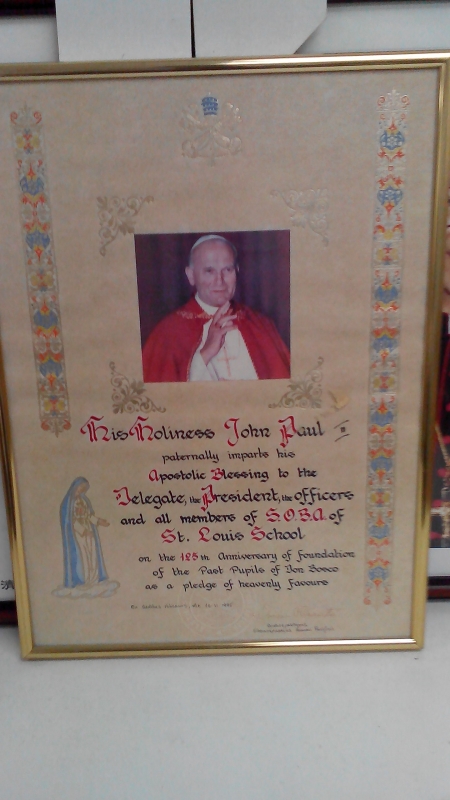 His Holiness John Paul II
paternally imparts his
Apostolic Blessing to the
Delegate, the President, the officers
and all members of S.O.B.A. of
St. Louis School
on the 125th Anniversary of foundation
of the Past Pupils of Don Bosco
as a pledge of heavenly favours